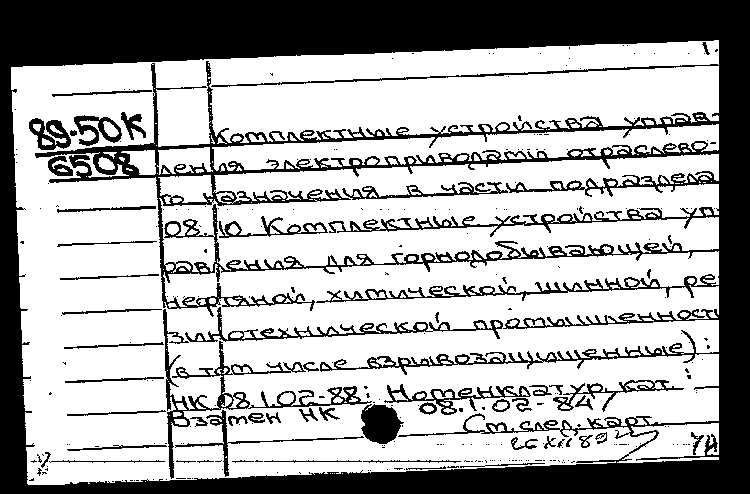 1.
89-50К
6508
Комплектные устройства управ-
ления электроприводами отраслево-
го назначения в части подраздела
08.10. Комплектные устройства уп-
равления для горнодобывающей,
нефтяной, химической, шинной, ре-
зинотехнической промышленности
(в том числе взрывозащищенные):
НК 08.1.02-88: Номенклатур. кат.:
Взамен НК 08.1.02-84/
См. след. карт.